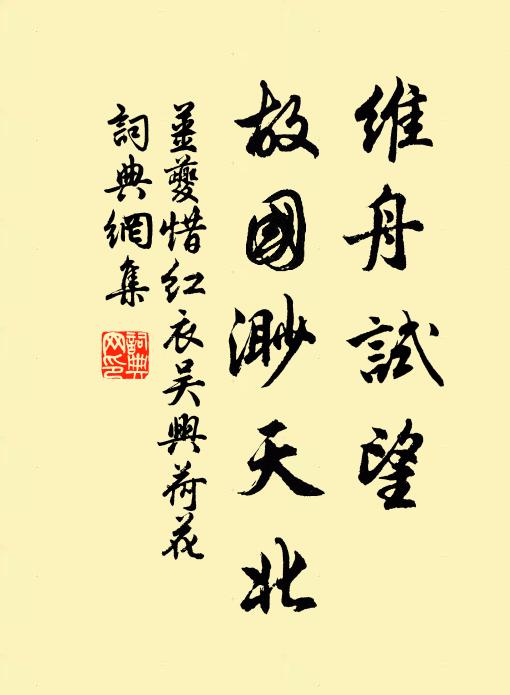 維舟試望
故國渺天北
姜夔惜紅衣吳興荷花
詞典網集
詞典網印